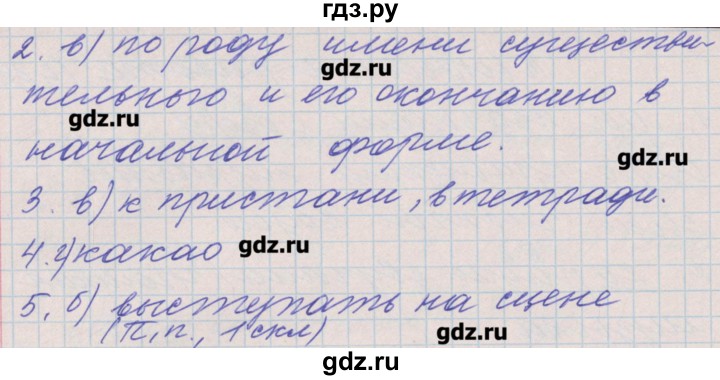 гдз.ру
2. в) по роду имени существи-
gdz.ru
тельного и его окончанию в
gdz.ru
начальной форме.
gdz.ru
3. в) к пристани, в тетради.
4. г) какао gdz.ru
5. б) выступать на сцене
(П.п., 1 скл) gdz.ru
gdz.ru